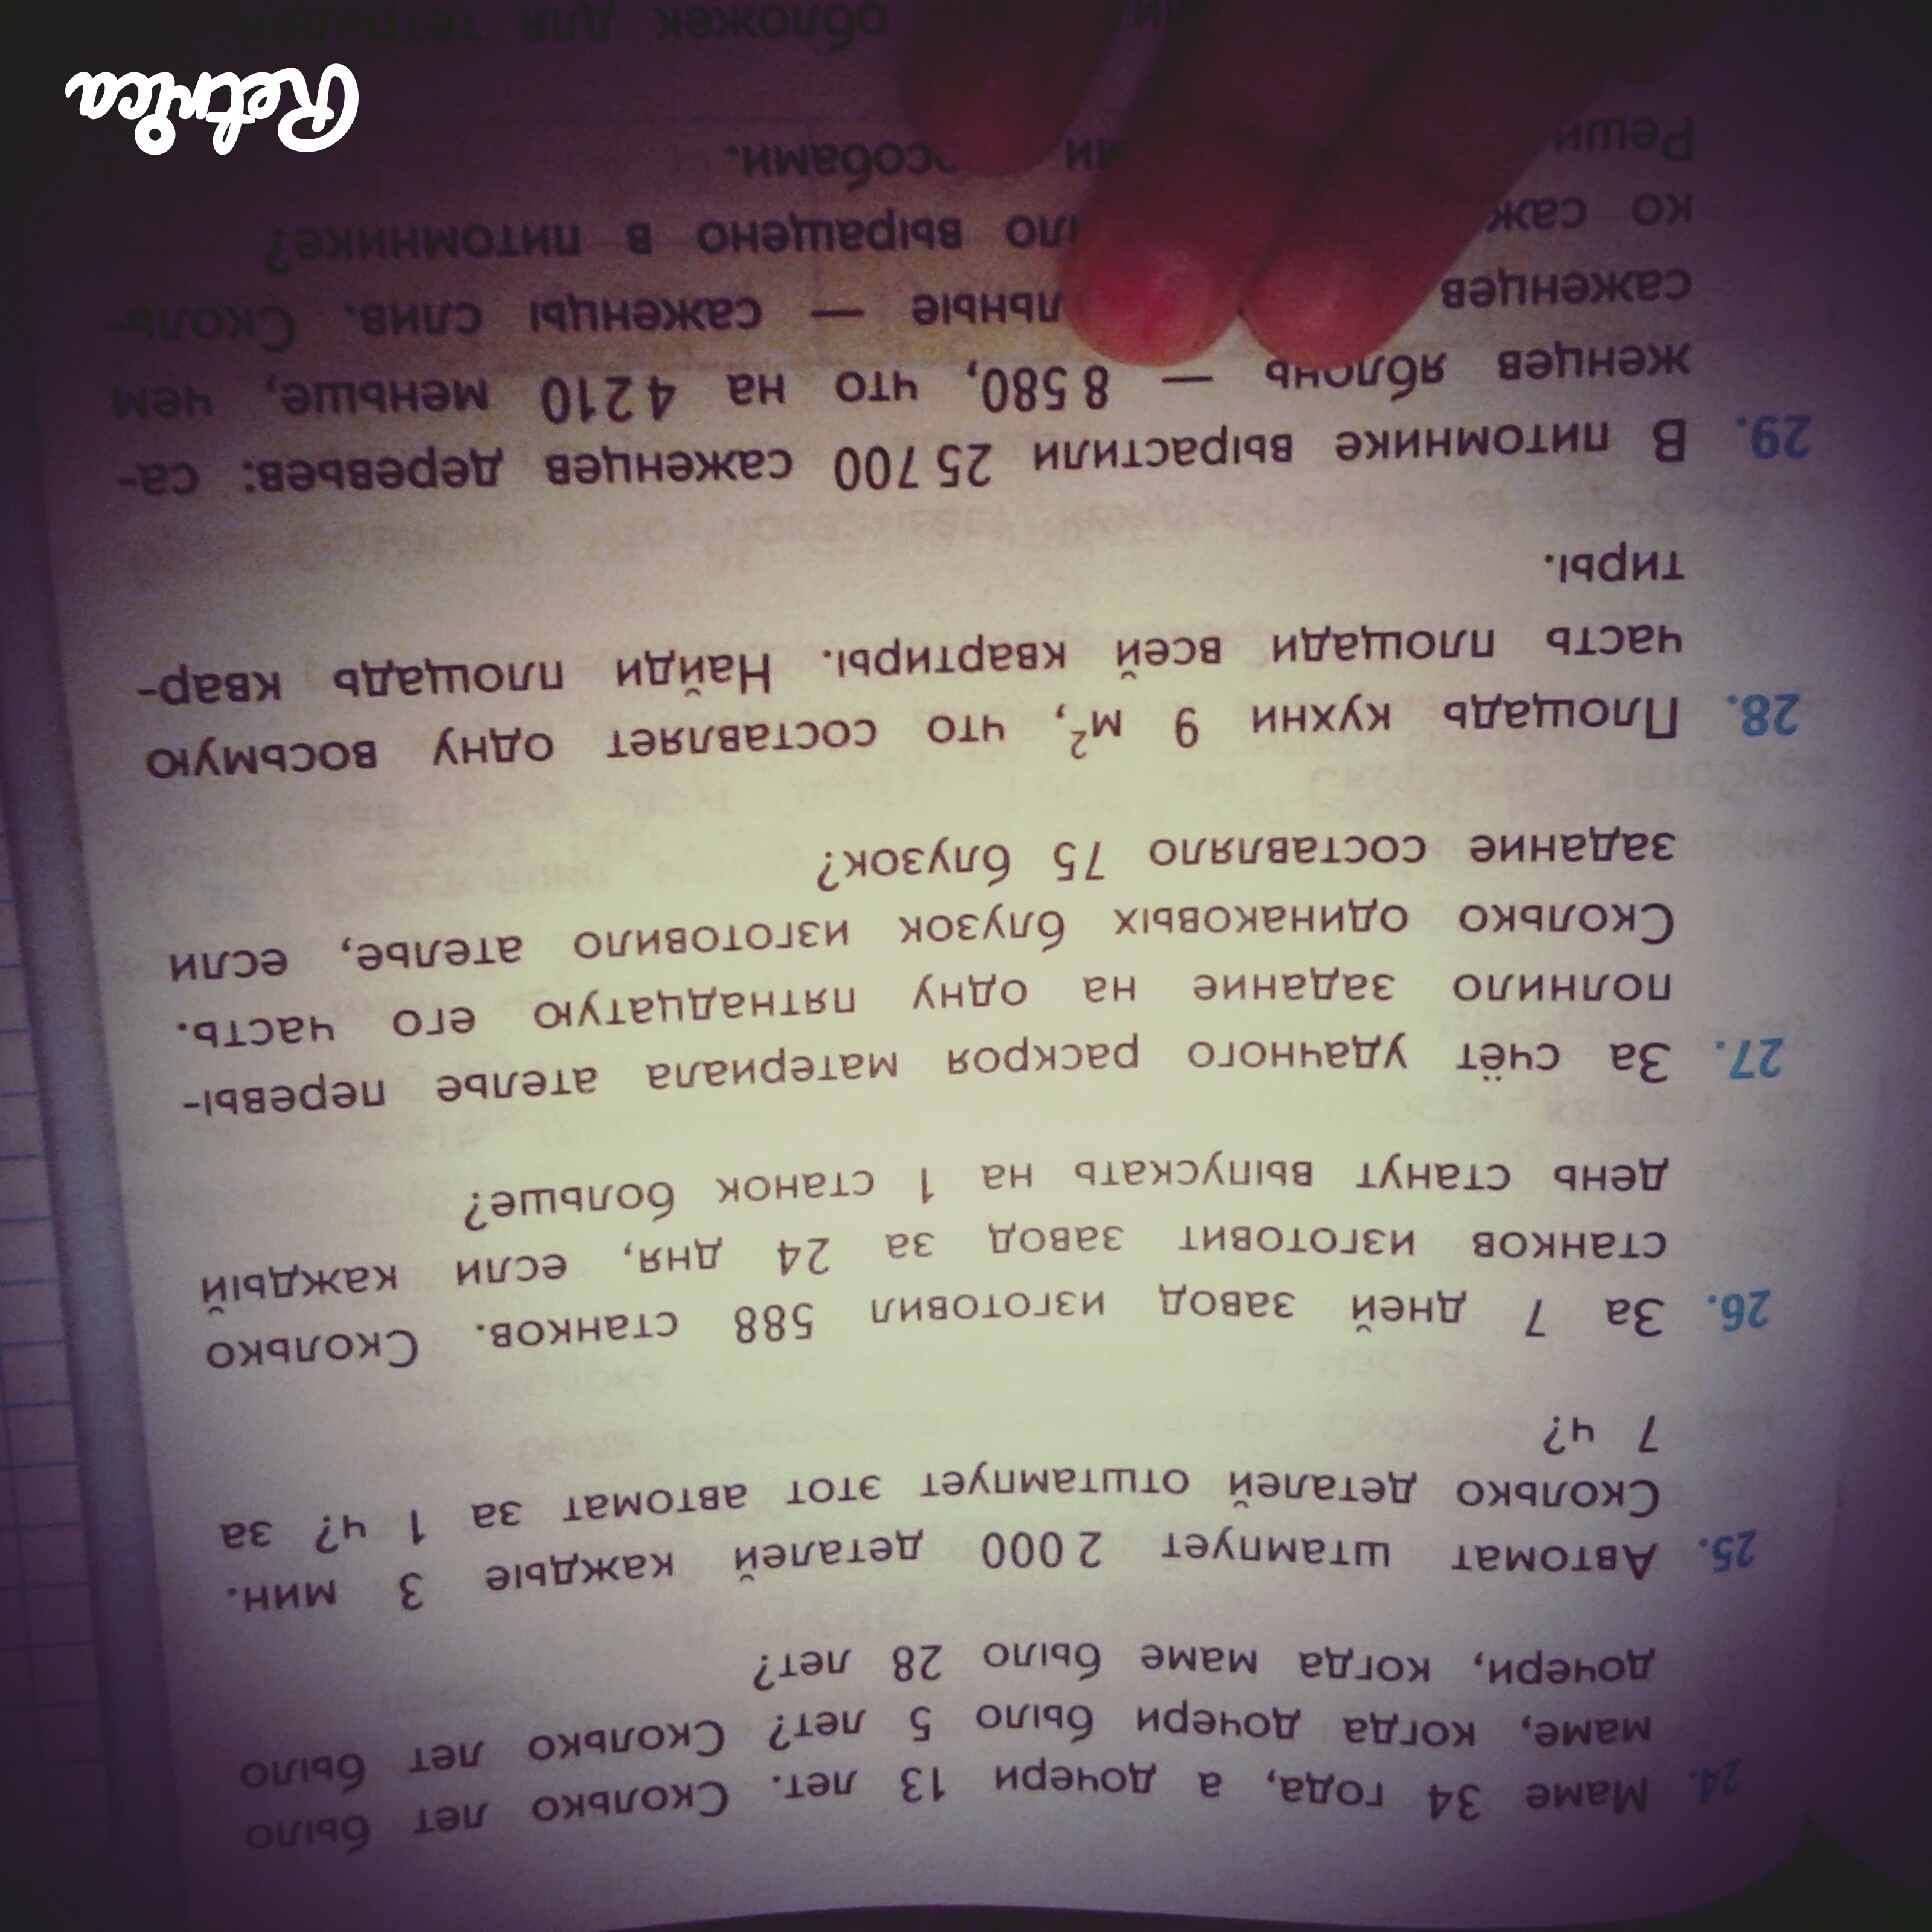 24. Маме 34 года, а дочери 13 лет. Сколько лет было
маме, когда дочери было 5 лет? Сколько лет было
дочери, когда маме было 28 лет?
25. Автомат штампует 2 000 деталей каждые 3 мин.
Сколько деталей отштампует этот автомат за 1 ч? за
7 ч?
26. За 7 дней завод изготовил 588 станков. Сколько
станков изготовит завод за 24 дня, если каждый
день станут выпускать на 1 станок больше?
27. За счёт удачного раскроя материала ателье перевы-
полнило задание на одну пятнадцатую его часть.
Сколько одинаковых блузок изготовило ателье, если
задание составляло 75 блузок?
28. Площадь кухни 9 м², что составляет одну восьмую
часть площади всей квартиры. Найди площадь квар-
тиры.
29. В питомнике вырастили 25 700 саженцев деревьев: са-
женцев яблонь — 8 580, что на 4 210 меньше, чем
саженцев льные — саженцы слив. Сколь-
ко саж ыло выращено в питомнике?
Реши ми особами.
обложек для тетрадей.
Retrica